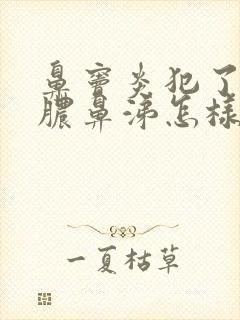 鼻窦炎犯了
脓鼻涕怎样
一夏枯草